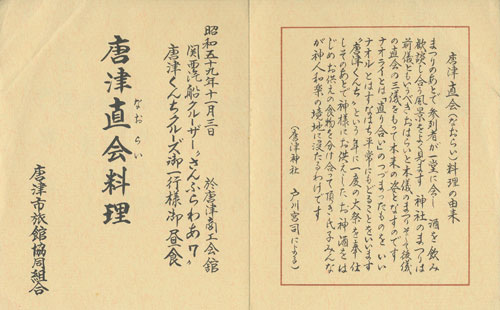 唐津直会(なおらい)料理の由来
まつりのあとで参列者が一堂に会し 酒を飲み
歓談し合う風景をよく見ます 神社のまつりは
前儀ともいうべきおはらいと本儀のまつりそして後儀
の直会の三儀をもって本来の姿となすのです
ナオライとは"直り合"のつづまったものをいい
ナオルとはすなはち平常にもどることをいいます
"唐津くんち"という年に一度の大祭を奉仕
しそのあとで神様にお供えしたお神酒をは
じめお供えの食物を分け合って頂き氏子みんな
が神人和楽の境地に浸たるわけです
(唐津神社 戸川宮司による)
昭和五十九年十一月三日
於唐津商工会館
関西汽船クルーザー"さんふらわあ7"
唐津くんちクルーズ御一行様御昼食
唐津直会料理
なおらい
唐津市旅館協同組合